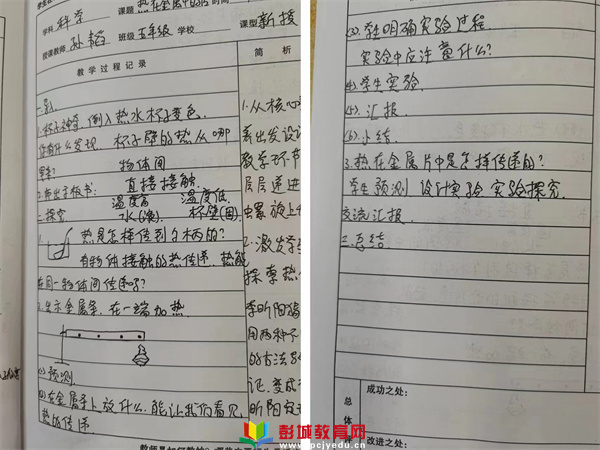 学科 科学 课题 热在金属中的传
授课教师 孙韬 班级 五年级 学校 课型 新授
教学过程记录
简析
一.导入
1.杯子神奇,倒入热水杯子变色.
你有什么发现, 杯子壁的热从哪
里来? 物体间
2.带出子板书: 直接接触
温度高 温度低
二.探究 水(液) 杯壁(固)
1. 热是怎样传到勺柄的?
有物体接触的热传递, 热能
在同一物体间传递吗?
2.出示金属条, 在一端加热.
(1)预测
(2)在金属条上放什么,能让我们看见
热的传递
1.从核心
素出发设
教学环节
层层递进
2.激发学
探索热
李昕阳
用两种不
的方法
证,变成
昕阳
(3).学生明确实验过程.
实验中应注意什么?
(4).学生实验.
(5).汇报.
(6).小结.
3.热在金属片中是怎样传递的?
学生预测 设计实验 实验探究.
交流汇报.
三.总结
总
体
成功之处:
改进之处:
彭城教育网
www.pcjyedu.cn